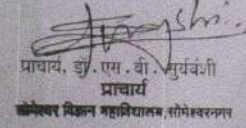 प्राचार्य, डॉ. एस. बी. सुर्यवंशी
प्राचार्य
सोमेश्वर विज्ञान महाविद्यालय, सोमेश्वरनगर